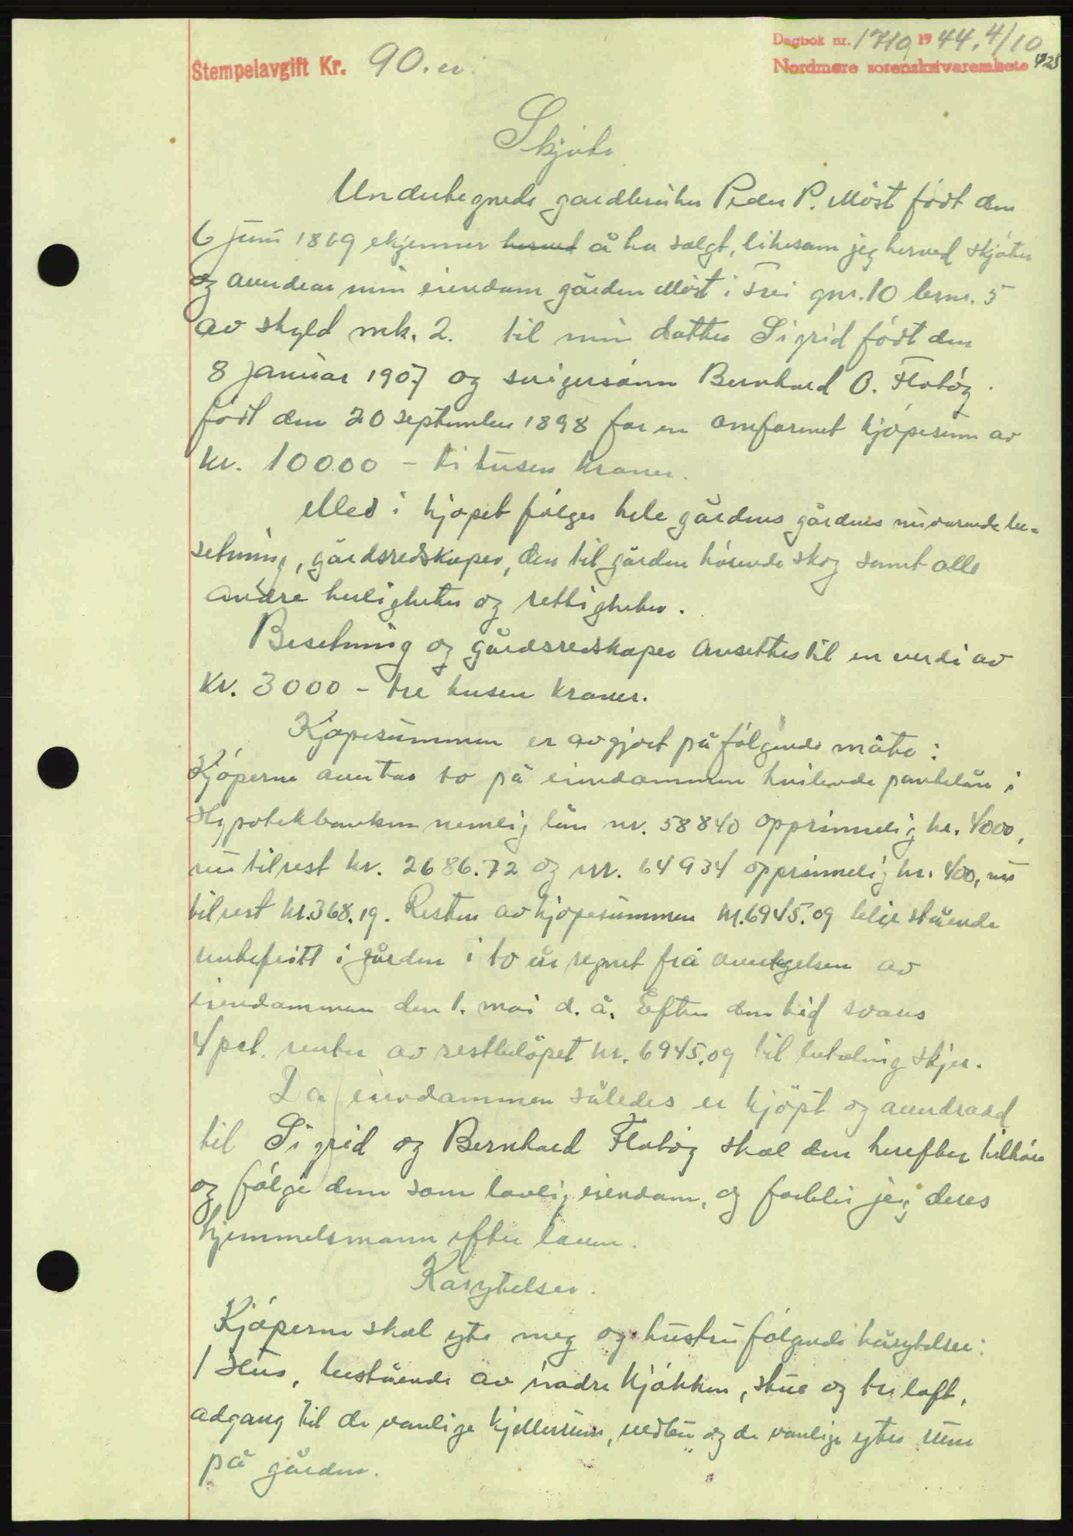 Stempelavgift Kr. 90.
Dagbok nr. 1710 1944. 4/10
Nordmøre sorenskriverembete
Skjøte
Undertegnede gardbruker Peder P. Møst født den
6 juni 1869 erkjenner herved å ha solgt, likesom jeg herved skjøter
og avendrar min eiendom gården Møst i Frei gnr. 10 brnr. 5
av skyld mk. 2. til min datter Sigrid født den
8 januar 1907 og svigersønn Bernhard O. Flatøy
født den 20 september 1898 for en omforenet kjøpesum av
kr. 10000 - ti tusen kroner.
Med i kjøpet følger hele gårdens gårdens nuværende be-
setning, gårdsredskaper, den til gården hørende skog samt alle
andre herligheter og rettigheter.
Besetning og gårdsredskaper ansettes til en verdi av
kr. 3000 - tre tusen kroner.
Kjøpesummen er avgjort på følgende måte:
Kjøperne overtar to på eiendommen hvilende pantelån i
Hypotekbanken nemlig lån nr. 58840 opprinnelig kr. 4000,
nu tilrest kr. 2686.72 og nr. 64934 opprinnelig kr. 400, nu
tilrest kr. 368.19. Resten av kjøpesummen kr. 6945.09 blir stående
rentefritt i gården i to år regnet fra overtagelsen av
eiendommen den 1. mai d. å. Efter den tid svares
4 pct. renter av restbeløpet kr. 6945,09 til betaling skjer.
Da eiendommen således er kjøpt og avendradd
til Sigrid og Bernhard Flatøy skal den herefter tilhøre
og følge dem som lovlig eiendom, og forblir jeg deres
hjemmelsmann efter loven.
Kårytelser.
Kjøperne skal yte meg og hustru følgende kårytelser:
1 Hus, bestående av nedre kjøkken, stue og tre loft,
adgang til de vanlige kjellerrum, vedbu og de vanlige ytre rum
på gården.